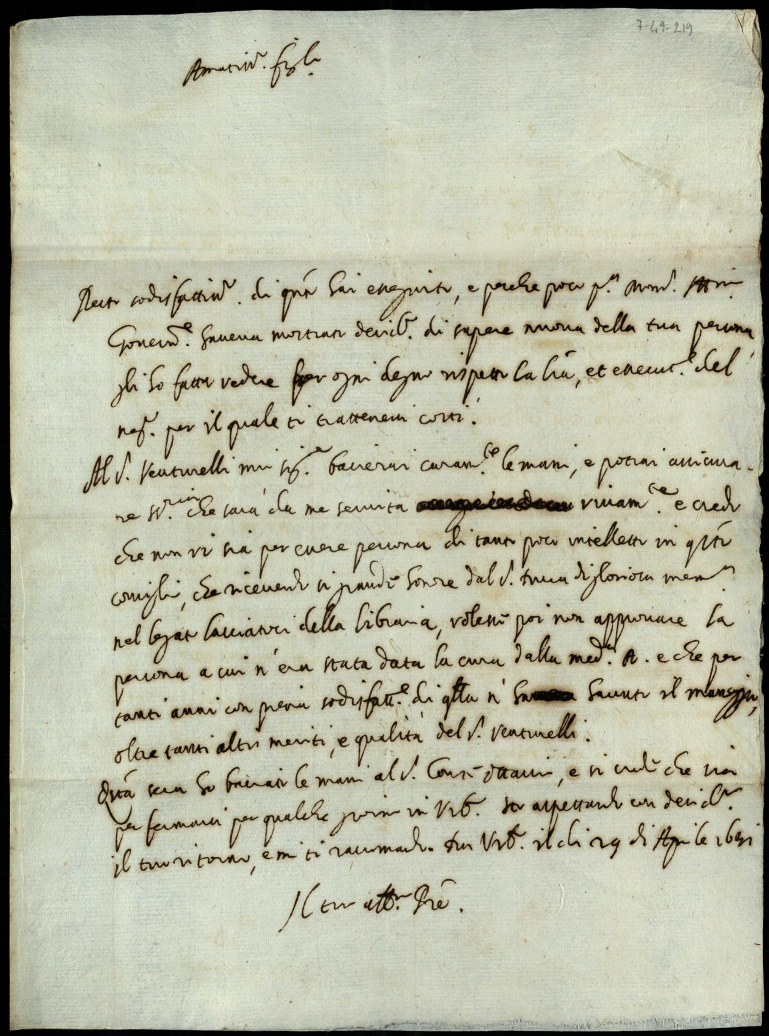 7-49-219
Amatiss.º figl.º
Resto sodisfattiss.º di q.nto hai esseguito, e perche poco p.ª Mons.r
Govern.re haveva mostrato desid.º di sapere nuova della tua persona,
gli ho fatto vedere per ogni degno rispetto la tua, et essecut.ne del
neg.º per il quale ti trattenevi costì.
Al S. Venturelli mio sig.re baciarai caram.te le mani, e potrai assicura-
re che sarà da me servita vivam.te e credo
che non vi sia per essere persona di tanto poco intelletto in q.sti
consigli, che ricevendo sì grande honore dal S. Duca di gloriosa mem.ª
nel legato lasciatoci della libraria, volesse poi non approvare la
persona a cui n'era stata data la cura dalla med.ª A. e che per
tanti anni con piena sodisfatt.e di q.lla n'ha havuto il maneggio,
oltre tanti altri meriti, e qualità del S. Venturelli.
Q.sta sera ho baciato le mani al S. Conte Ottavio, e si crede che sia
per fermarsi per qualche giorno in Urb.º Sto aspettando con desid.º
il tuo ritorno, e mi ti racomando. Di Urb.º il dì 29 di Aprile 1631
Il tuo aff.mo Pre.